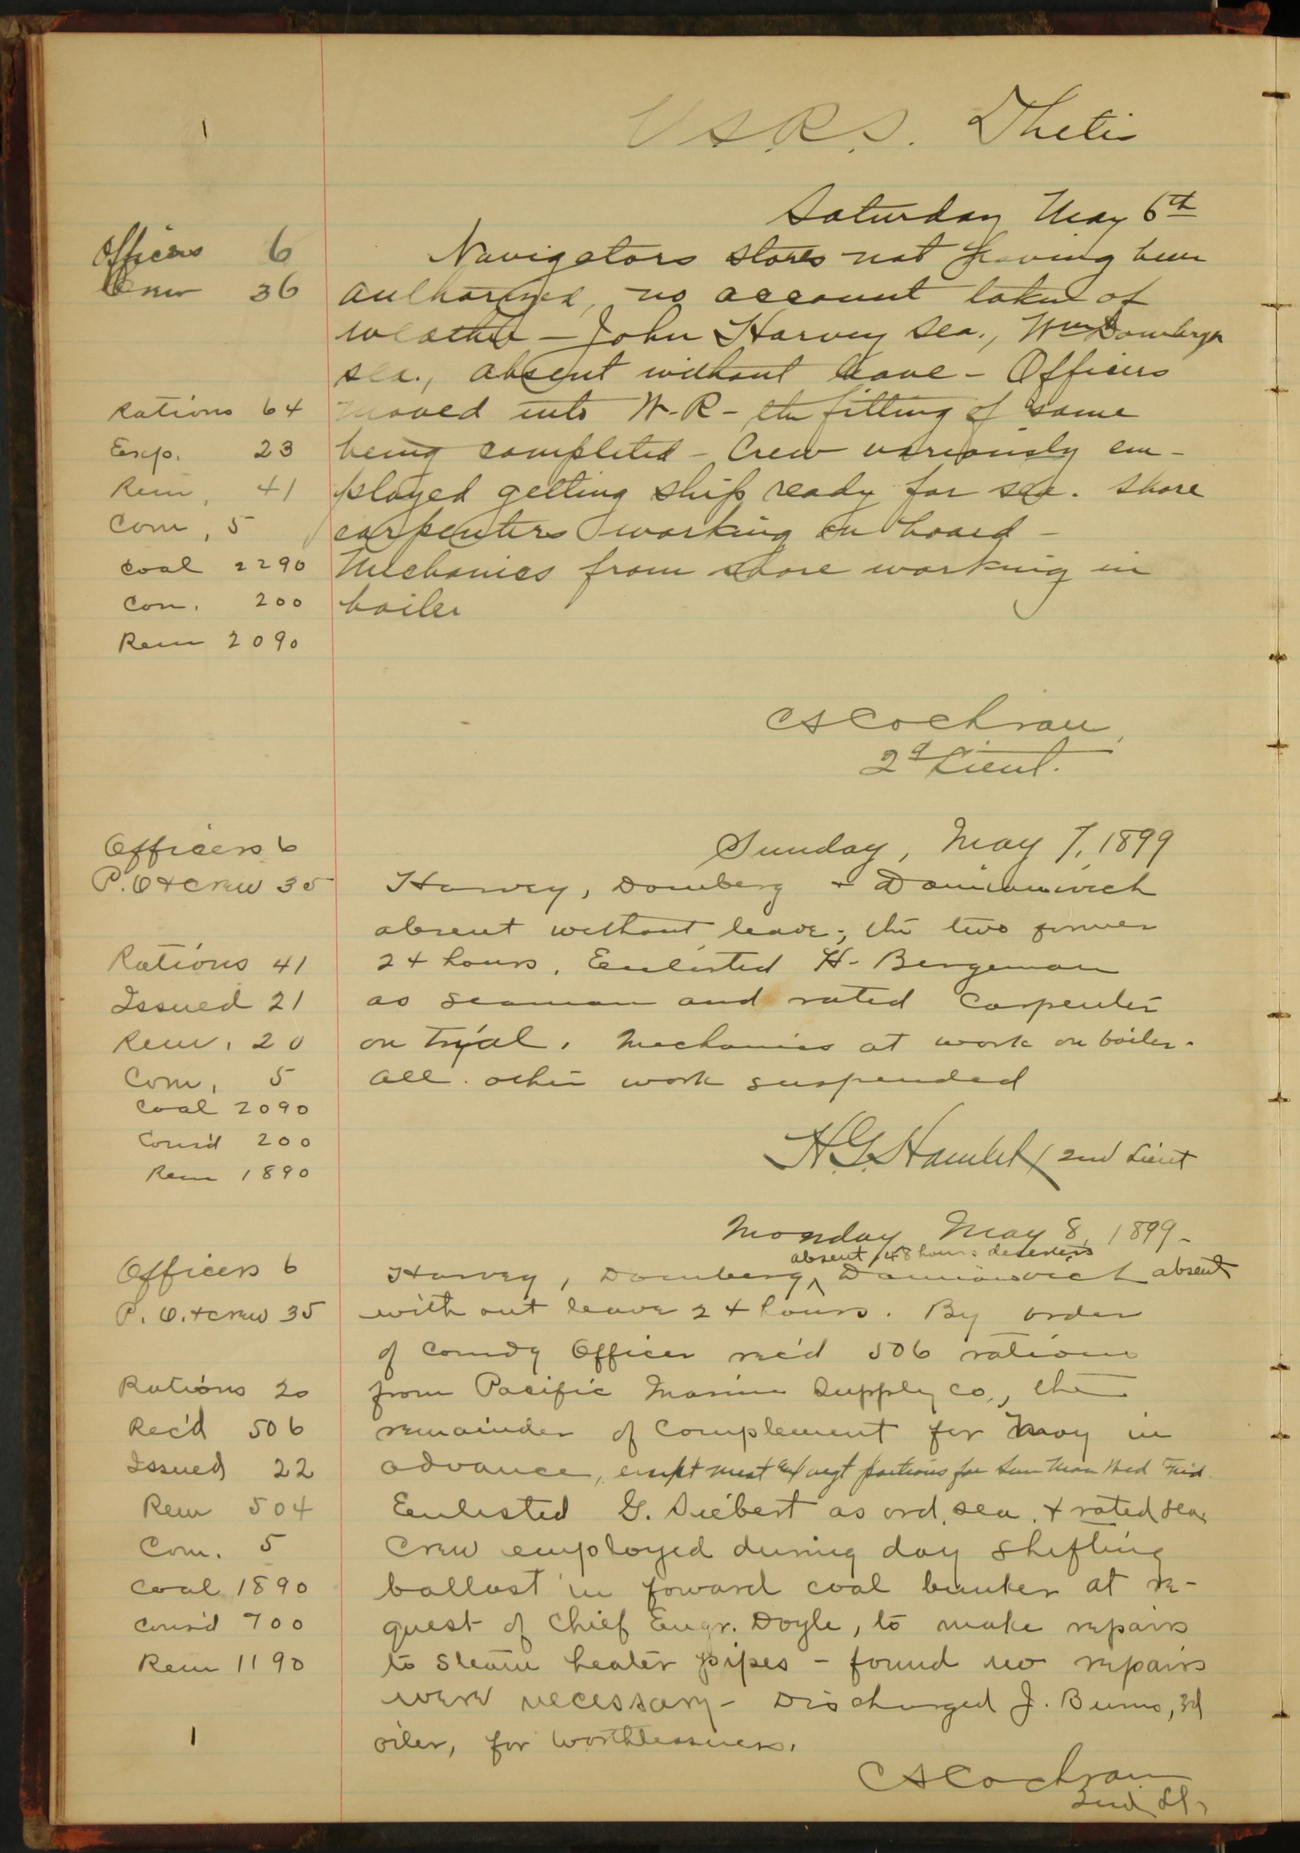 1
U.S.R.S. Thetis
Saturday May 6th
Officers 6
Crew 36
Navigators stores not having been
authorized, no account taken of
weather – John Harvey sea., Wm Domberg
sea., absent without leave – Officers
Rations 64
moved into W.R. – the fitting of same
Exp. 23
being completed – Crew variously em-
Rem, 41
ployed getting ship ready for sea. Shore
Com, 5
carpenters working on board –
Coal 2290
Mechanics from shore working in
Con. 200
boiler
Rem 2090
CS Cochran,
2d Lieut.
Sunday, May 7, 1899
Officers 6
P.O + crew 35
Harvey, Domberg +
absent without leave; the two former
Rations 41
24 hours. Enlisted H. Bergeman
Issued 21
as seaman and rated Carpenter
Rem. 20
on trial. Mechanics at work on boiler.
Com, 5
all other work suspended
Coal 2090
Cons'd 200
Rem 1890
H.G. Hamlet 2nd Lieut
Monday May 8, 1899 –
absent 48 hours deserters
Officers 6
Harvey, Domberg ^ absent
P. O. + crew 35
with out leave 24 hours. By order
of Comdg Officer rec'd 506 rations
Rations 20
from Pacific Marine Supply Co., the
Rec'd 506
remainder of complement for May in
Issued 22
advance, except meat and vegt portions for Sun Mon Wed Frid.
Rem 504
Enlisted G. Siebert as ord. sea. + rated sea.
Com. 5
Crew employed during day shifting
Coal 1890
ballast in foward coal bunker at re-
Cons'd 700
quest of Chief Engr. Doyle, to make repairs
Rem 1190
to steam heater pipes – found no repairs
were necessary – Discharged J. Burns, 3d
1
oiler, for worthlessness.
CS Cochran
2nd Lt.